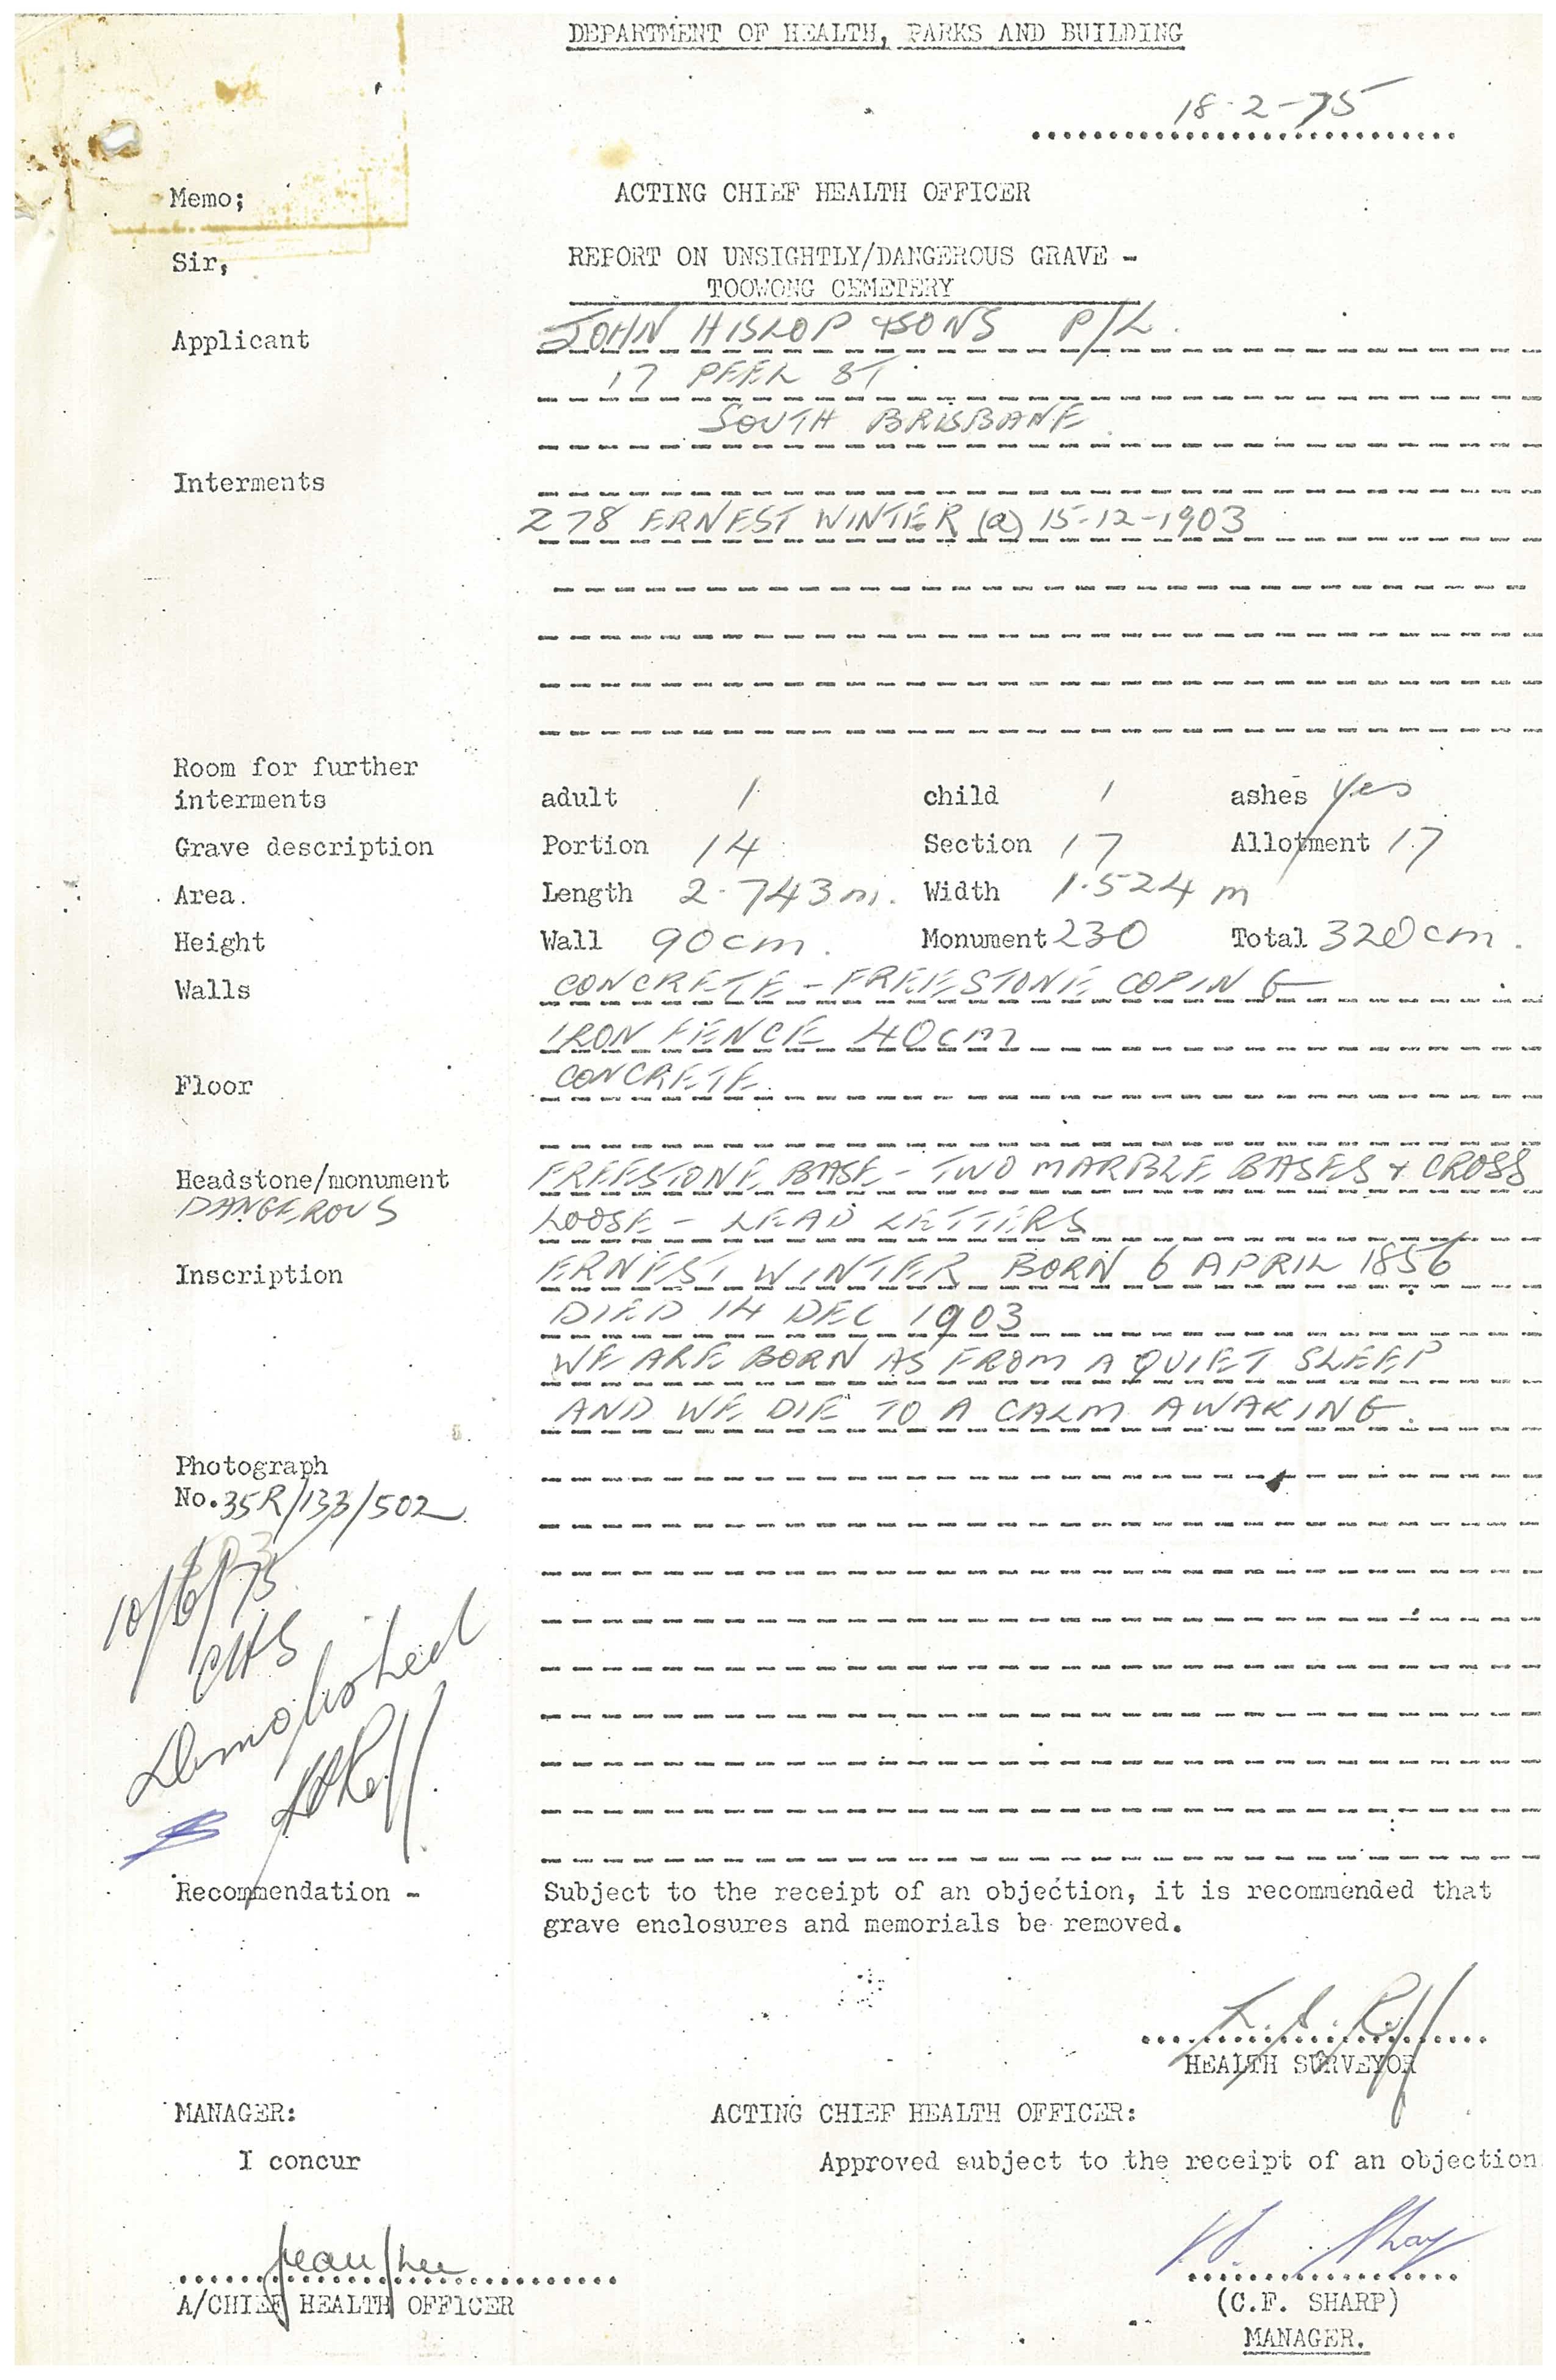 DEPARTMENT OF HEALTH, PARKS AND BUILDING
18-2-75
Memo; ACTING CHIEF HEALTH OFFICER
Sir, REPORT ON UNSIGHTLY/DANGEROUS GRAVE -
TOOWONG CEMETERY
Applicant JOHN HISLOP & SONS P/L.
17 PEEL ST.
SOUTH BRISBANE.
Interments
278 ERNEST WINTER (a) 15-12-1903
Room for further
interments adult 1 child 1 ashes Yes
Grave description Portion 14 Section 17 Allotment 17
Area. Length 2.743 m. Width 1.524 m
Height Wall 90cm. Monument 230 Total 320cm.
Walls CONCRETE - FREESTONE COPING
IRON FENCE 40cm
Floor CONCRETE.
Headstone/monument FREESTONE BASE - TWO MARBLE BASES & CROSS
DANGEROUS LOOSE - LEAD LETTERS
Inscription ERNEST WINTER BORN 6 APRIL 1856
DIED 14 DEC 1903
WE ARE BORN AS FROM A QUIET SLEEP
AND WE DIE TO A CALM AWAKING.
Photograph
No. 35R/133/502
10/6/75
CHS
Demolished
Recommendation - Subject to the receipt of an objection, it is recommended that
grave enclosures and memorials be removed.
HEALTH SURVEYOR
MANAGER: ACTING CHIEF HEALTH OFFICER:
I concur Approved subject to the receipt of an objection
A/CHIEF HEALTH OFFICER (C.F. SHARP)
MANAGER.